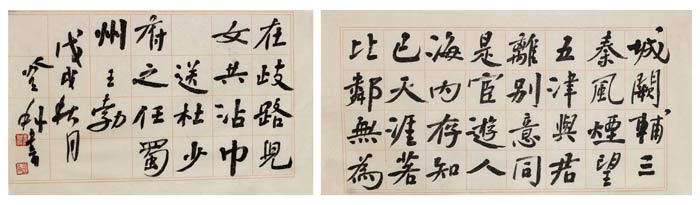 城闕輔三
秦風煙望
五津與君
離別意同
是宦遊人
海内存知
己天涯若
比鄰無為
在歧路兒
女共沾巾
送杜少
府之任蜀
州王勃
戊戌秋月
登科書